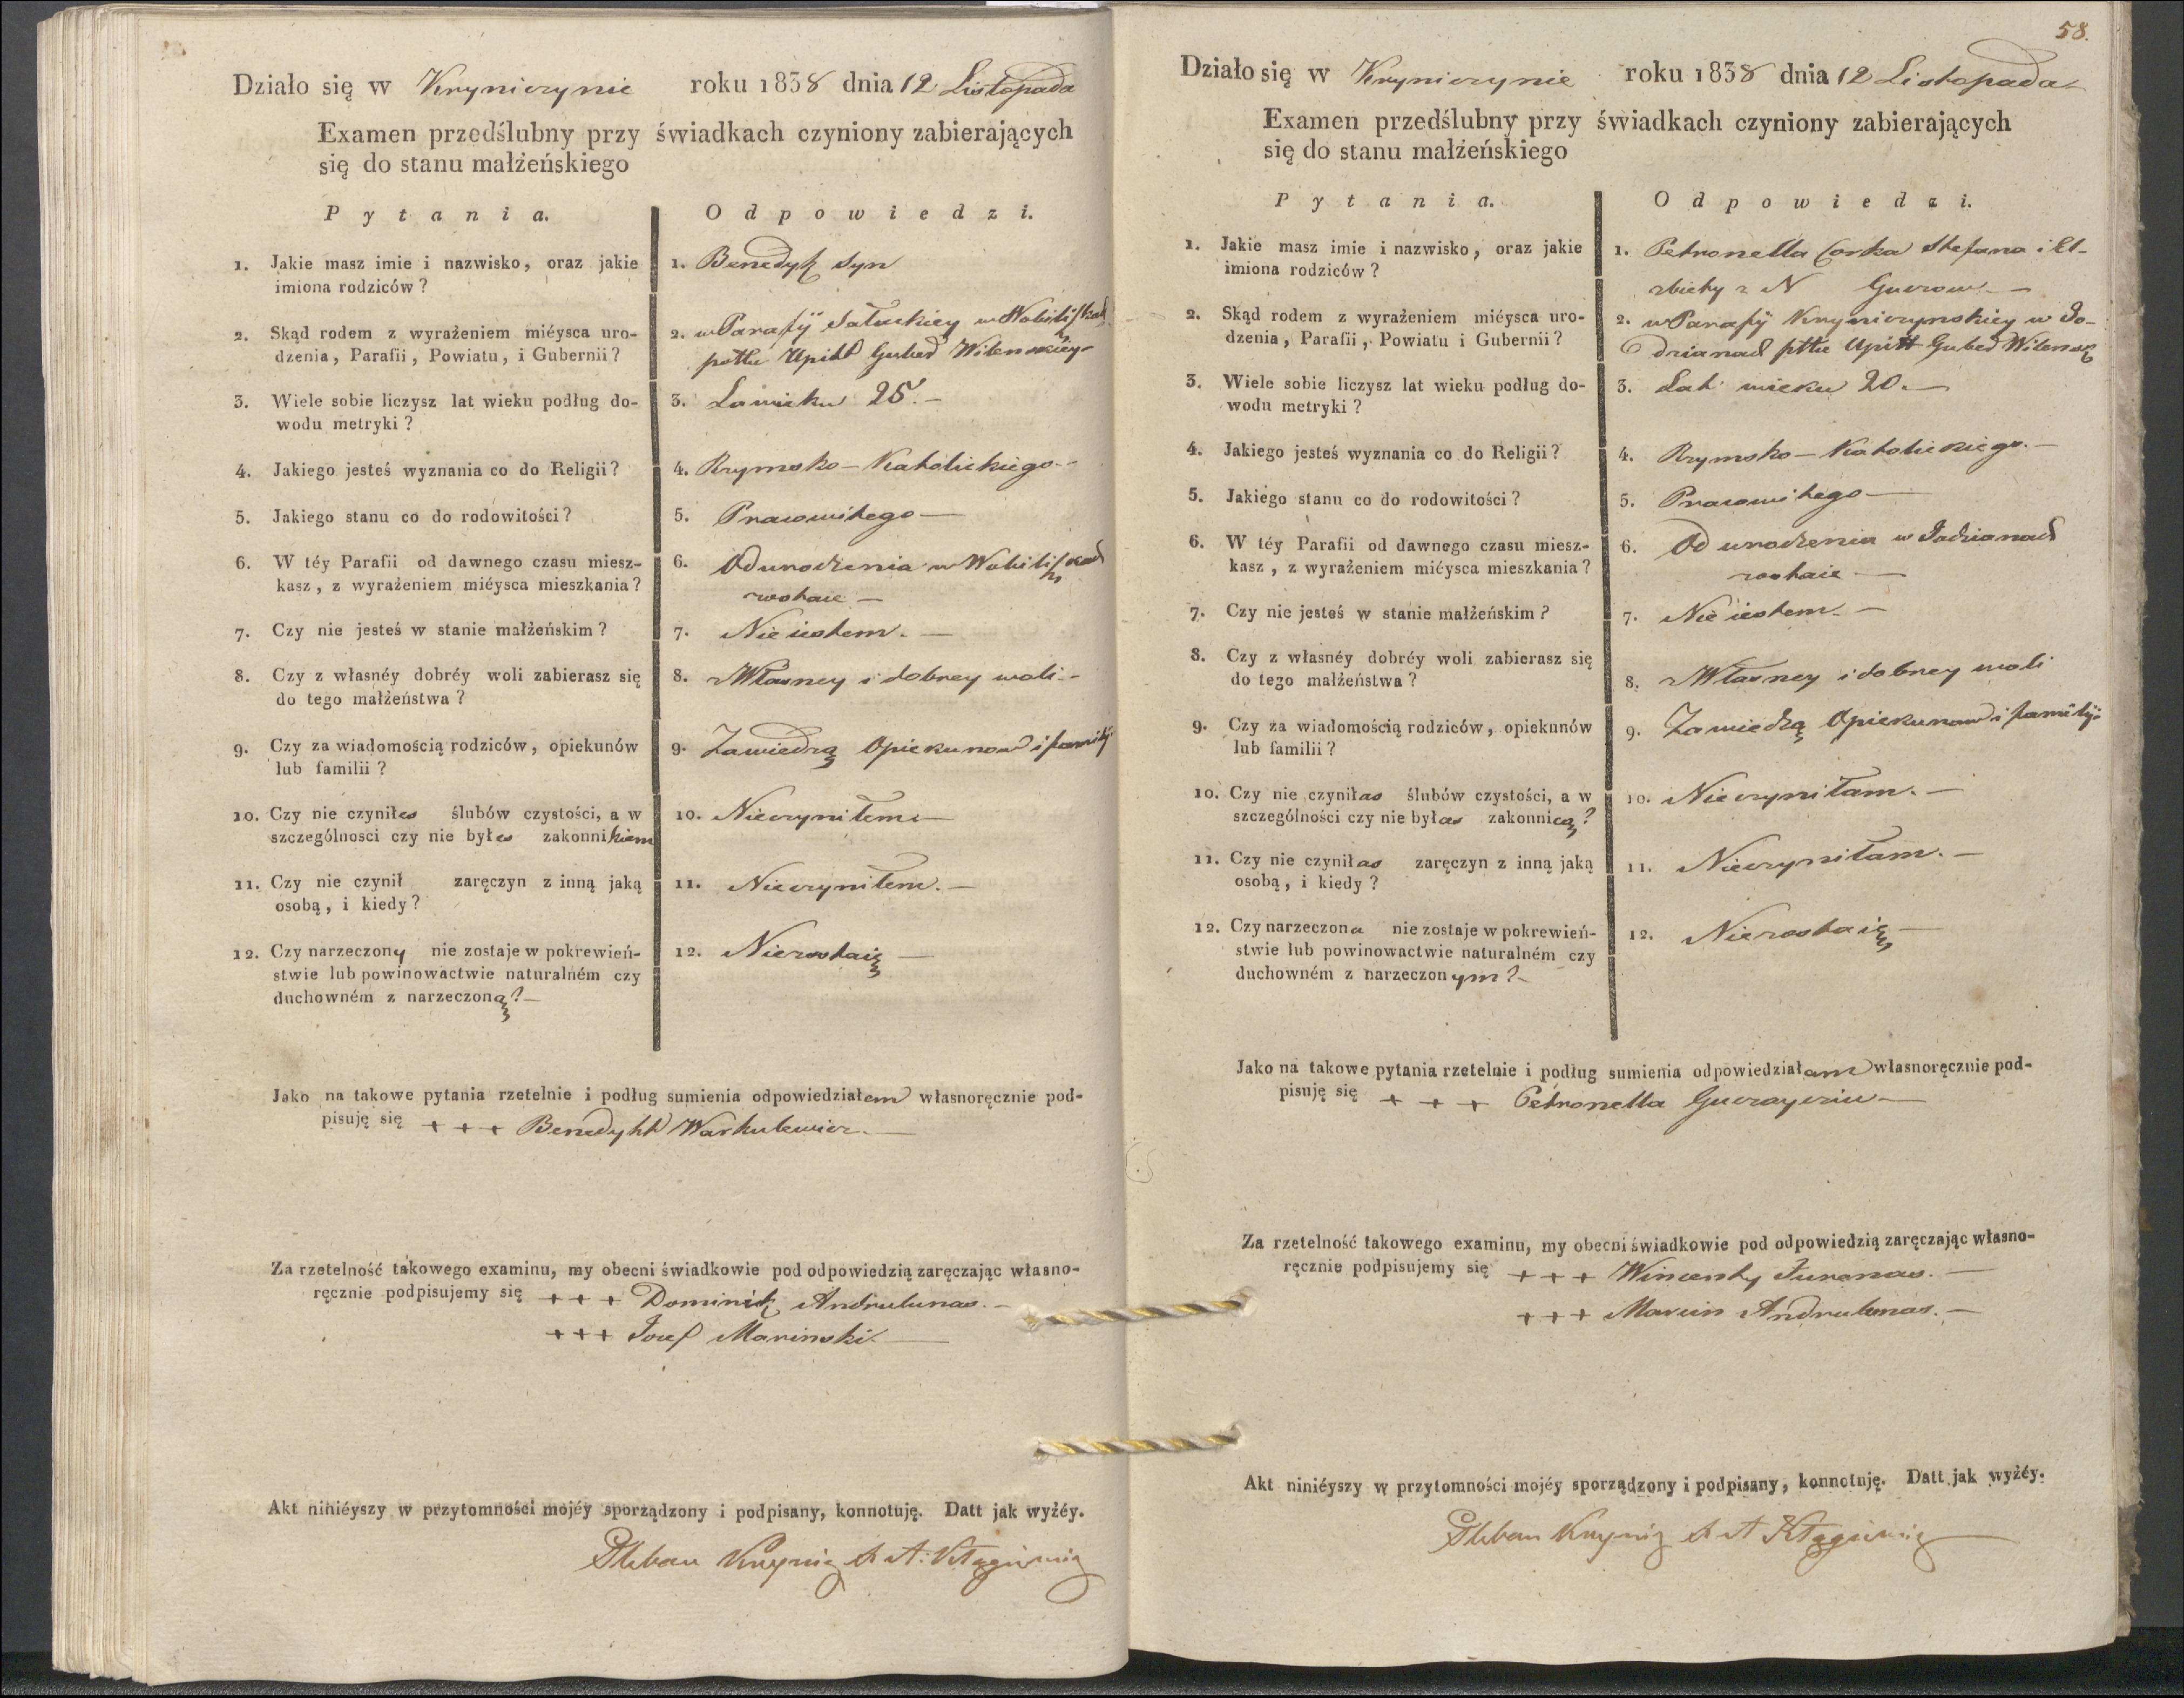 Działo się w Kryniczynie roku 1838 dnia 12 Listopada
Examen przedślubny przy świadkach czyniony zabierających
się do stanu małżeńskiego
Pytania. Odpowiedzi.
1. Jakie masz imie i nazwisko, oraz jakie
imiona rodziców?
1. Benedykt Syn
2. Skąd rodem z wyrażeniem miéysca uro-
dzenia, Parafii, Powiatu, i Gubernii?
2. w Parafij Sałackiey w
pttu Upitt Guber Wilenskiey
3. Wiele sobie liczysz lat wieku podług do-
wodu metryki?
3. La wieku 25.-
4. Jakiego jesteś wyznania co do Religii?
4. Rzymsko-Katolickiego.-
5. Jakiego stanu co do rodowitości?
5. Pracowitego—
6. W téy Parafii od dawnego czasu miesz-
kasz, z wyrażeniem miéysca mieszkania?
6. Od urodzenia w
zostaie —
7. Czy nie jesteś w stanie małżeńskim?
7. Nie iestem. —
8. Czy z własnéy dobréy woli zabierasz się
do tego małżeństwa?
8. z Własney i dobrey woli.-
9. Czy za wiadomością rodziców, opiekunów
lub familii?
9. Zawiedzą Opiekunow i familij
10. Czy nie czyniłes ślubów czystości, a w
szczególnosci czy nie byłes zakonnikiem
10. Nieczyniłem—
11. Czy nie czynił zaręczyn z inną jaką
osobą, i kiedy?
11. Nieczyniłem.—
12. Czy narzeczony nie zostaje w pokrewień-
stwie lub powinowactwie naturalném czy
duchowném z narzeczoną?—
12. Niezostaię —
Jako na takowe pytania rzetelnie i podług sumienia odpowiedziałem własnoręcznie pod-
pisuję się + + + Benedykt Warkulewicz.—
Za rzetelność takowego examinu, my obecni świadkowie pod odpowiedzią zaręczając własno-
ręcznie podpisujemy się + + + Dominik Andrulunas.—
+ + + Jozef Marinski.—
Akt niniéyszy w przytomności mojéy sporządzony i podpisany, konnotuję. Datt jak wyżéy.
Pleban Krynic X A:
58.
Działo się w Kryniczynie roku 1838 dnia 12 Listopada
Examen przedślubny przy świadkach czyniony zabierających
się do stanu małżeńskiego
Pytania. Odpowiedzi.
1. Jakie masz imie i nazwisko, oraz jakie
imiona rodziców?
1. Petronella Corka Stefana i El-
zbiety z N
2. Skąd rodem z wyrażeniem miéysca uro-
dzenia, Parafii, Powiatu i Gubernii?
2. w Parafij Kryniczynskiey w Jo-
dzianach pttu Upitt Guber Wilensk
3. Wiele sobie liczysz lat wieku podług do-
wodu metryki?
3. Lat wieku 20.—
4. Jakiego jesteś wyznania co do Religii?
4. Rzymsko-Katolickiego.—
5. Jakiego stanu co do rodowitości?
5. Pracowitego—
6. W téy Parafii od dawnego czasu miesz-
kasz, z wyrażeniem miéysca mieszkania?
6. Od urodzenia w Jodzianach
zostaie —
7. Czy nie jesteś w stanie małżeńskim?
7. Nie iestem.—
8. Czy z własnéy dobréy woli zabierasz się
do tego małżeństwa?
8. z Własney i dobrey woli
9. Czy za wiadomością rodziców, opiekunów
lub familii?
9. Zawiedzą Opiekunow i familij-
10. Czy nie czyniłas ślubów czystości, a w
szczególności czy nie byłas zakonnicą?
10. Nieczyniłam.—
11. Czy nie czyniłas zaręczyn z inną jaką
osobą, i kiedy?
11. Nieczyniłam.—
12. Czy narzeczona nie zostaje w pokrewień-
stwie lub powinowactwie naturalném czy
duchowném z narzeczonym?-
12. Niezostaię—
Jako na takowe pytania rzetelnie i podług sumienia odpowiedziałam własnoręcznie pod-
pisuję się + + + Petronella
Za rzetelność takowego examinu, my obecni świadkowie pod odpowiedzią zaręczając własno-
ręcznie podpisujemy się + + + Wincenty Juronas.—
+ + + Marcin Andrulunas.—
Akt niniéyszy w przytomności mojéy sporządzony i podpisany, konnotuję. Datt jak wyżéy.
Pleban Krynic X A